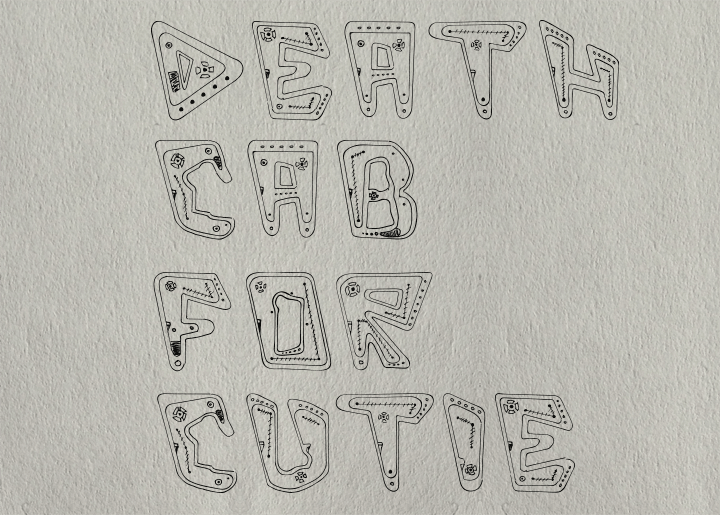 DEATH
CAB
FOR
CUTIE